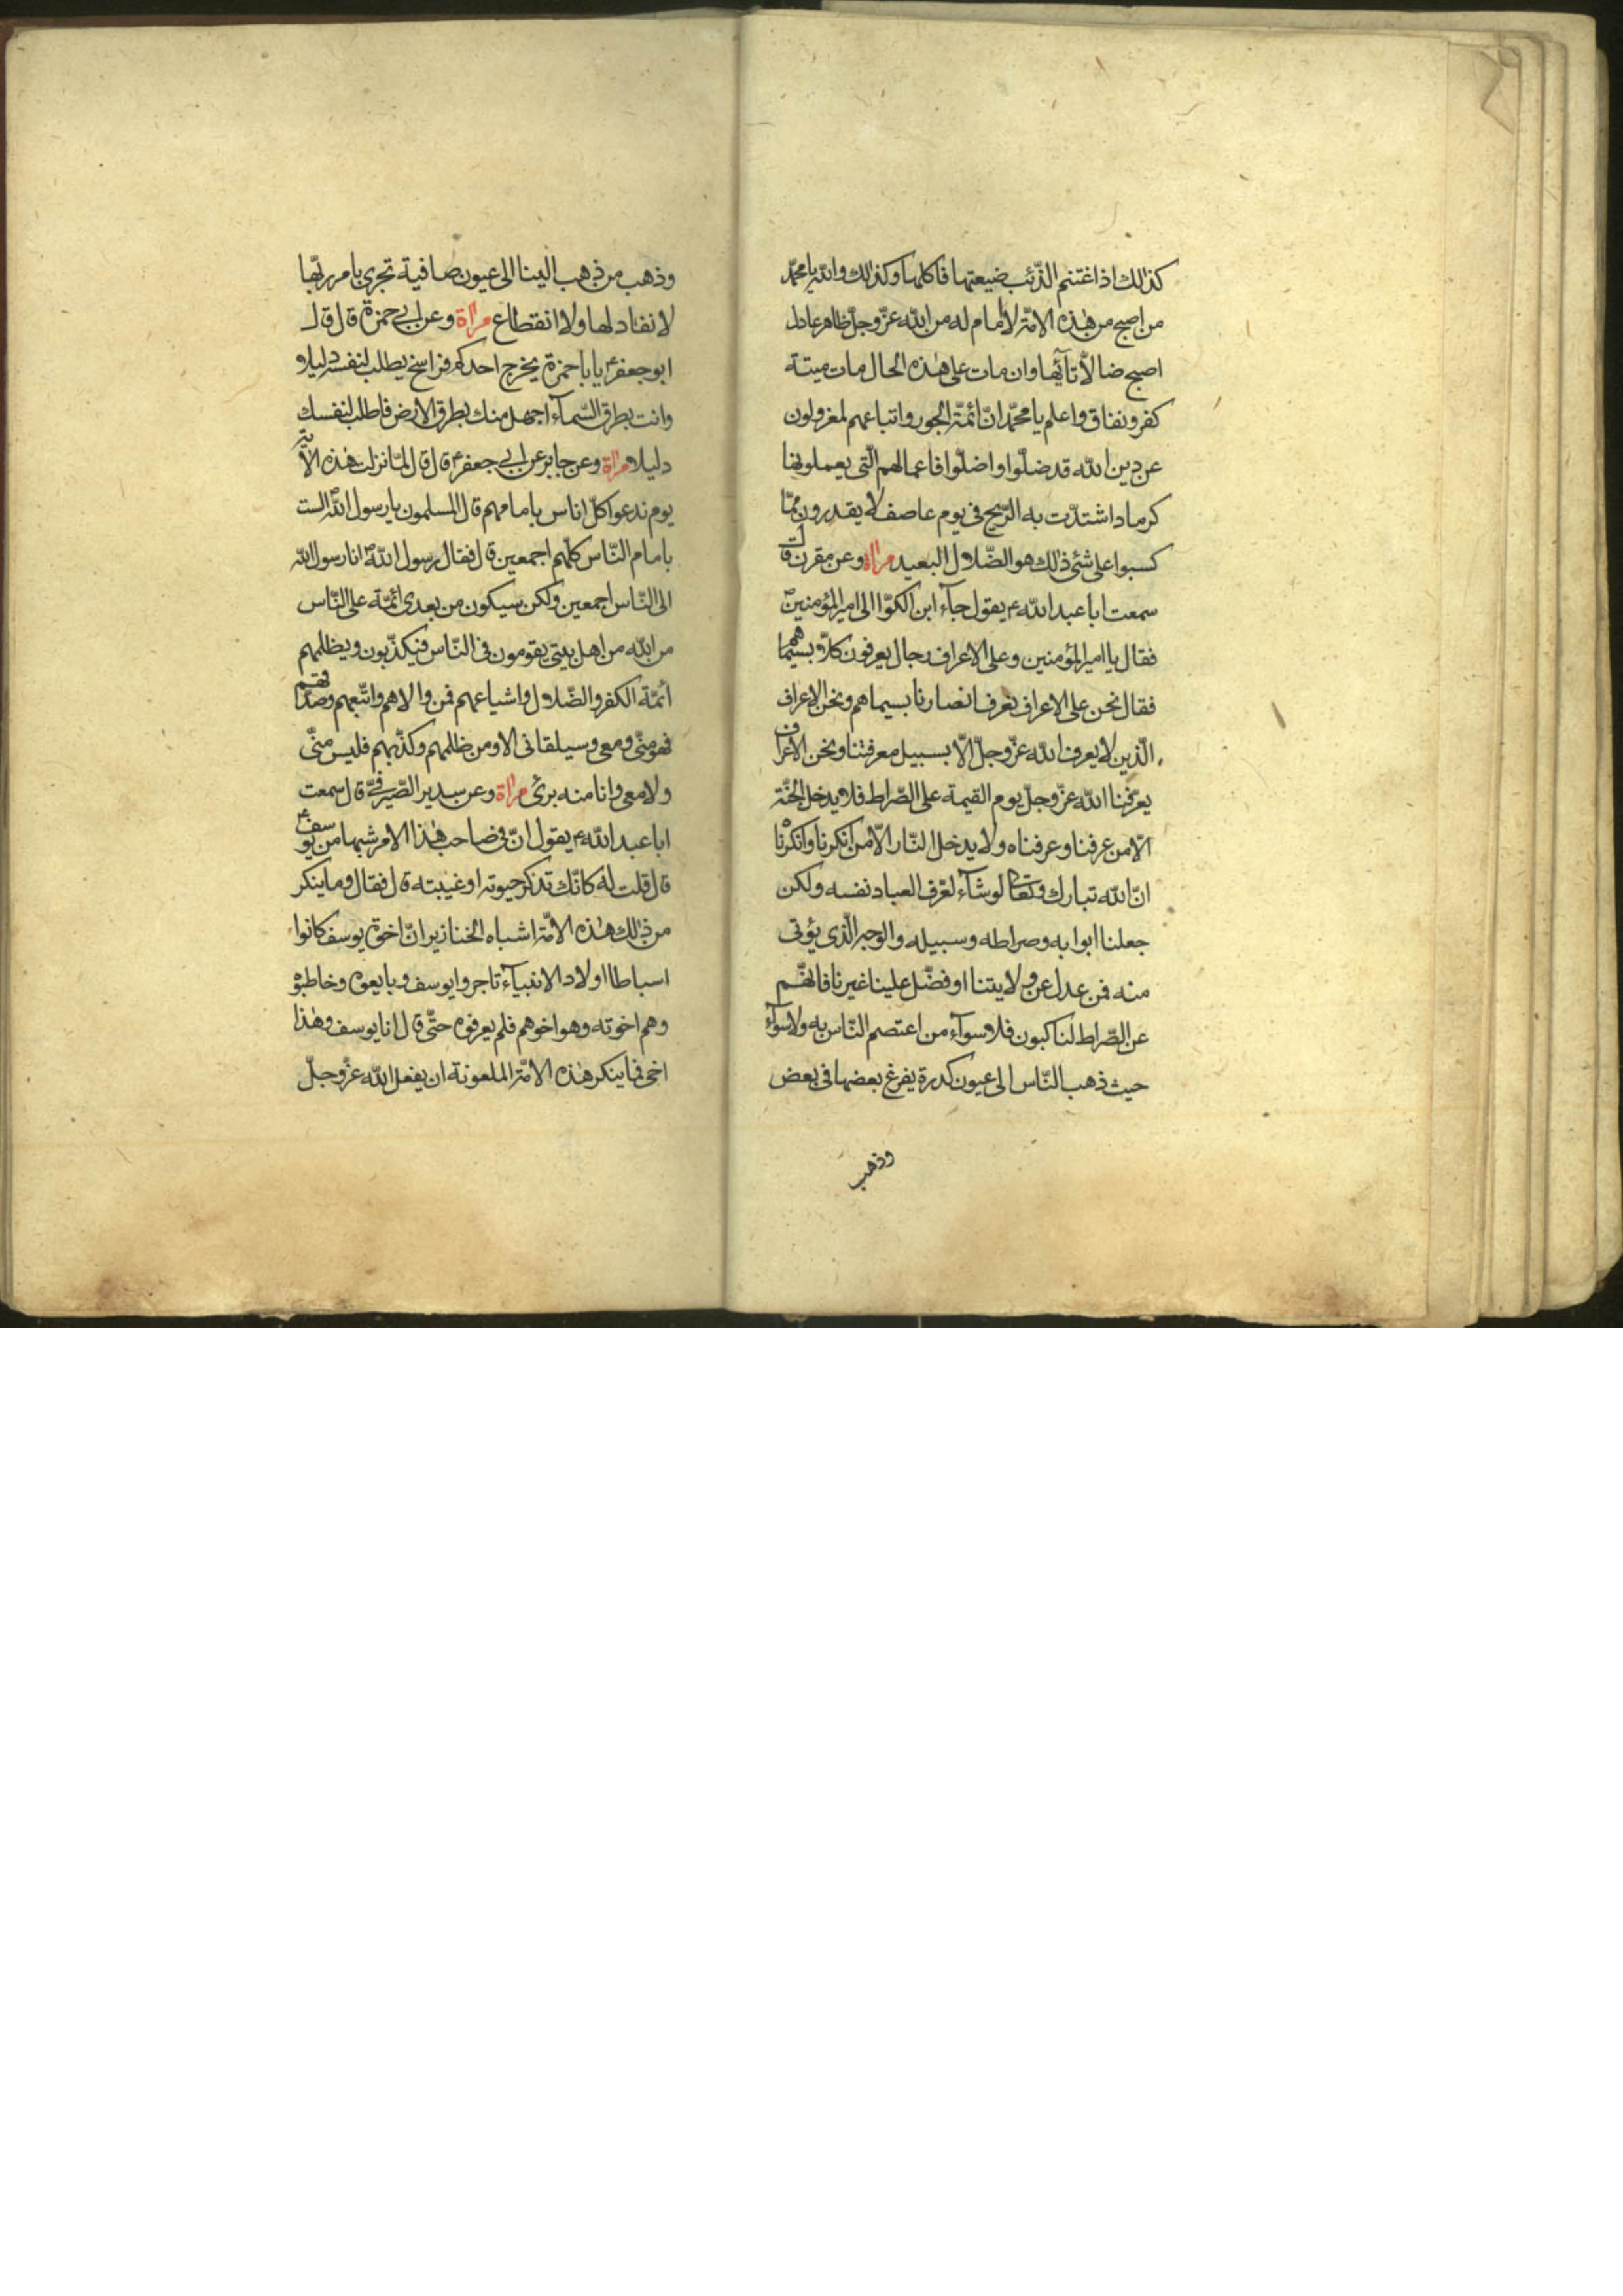 كذلك اذا اغتنم الذّئب ضيعتها فاكلها وكذلك والله يا محمّد
من اصبح من هذه الامّة لا امام له من الله عزّ وجلّ ظاهر عادل
اصبح ضالّا تآئها وان مات على هذه الحال مات ميتة
كفر ونفاق واعلم يا محمّد انّ ائمّة الجور واتباعهم لمعزولون
عن دين الله قد ضلّوا واضلّوا فاعمالهم الّتي يعملونها
كرماد اشتدّت به الرّيح في يوم عاصف لا يقدرون ممّا
كسبوا على شئ ذلك هو الضّلال البعيد مراة وعن مقرن قال
سمعت ابا عبد الله ع يقول جآء ابن الكوّا الى امير المؤمنين
فقال يا امير المؤمنين وعلى الاعراف رجال يعرفون كلّا بسيماهم
فقال نحن على الاعراف نعرف انصارنا بسيماهم ونحن الاعراف
الّذين لا يعرف الله عزّ وجلّ الّا بسبيل معرفتنا ونحن الاعراف
يعرّفنا الله عزّ وجلّ يوم القيمة على الصّراط فلا يدخل الجنّة
الّا من عرفنا وعرفناه ولا يدخل النّار الّا من انكرنا وانكرناه
انّ الله تبارك وتعالى لو شآء لعرّف العباد نفسه ولكن
جعلنا ابوابه وصراطه وسبيله والوجه الّذي يؤتى
منه فمن عدل عن ولايتنا او فضّل علينا غيرنا فانّهم
عن الصّراط لناكبون فلا سوآء من اعتصم النّاس به ولا سوآء
حيث ذهب النّاس الى عيون كدرة يفرغ بعضها في بعض
وذهب
وذهب من ذهب الينا الى عيون صافية تجري بامر ربّها
لا نفاد لها ولا انقطاع مراة وعن ابي حمزة قال قال
ابو جعفر ع يا با حمزة يخرج احدكم فراسخ يطلب لنفسه دليلا
وانت بطرق السّمآء اجهل منك بطرق الارض فاطلب لنفسك
دليلا مراة وعن جابر عن ابي جعفر ع قال قال لمّا نزلت هذه الاية
يوم ندعوا كلّ اناس بامامهم قال المسلمون يا رسول الله الست
بامام النّاس كلّهم اجمعين قال فقال رسول الله ص انا رسول الله
الى النّاس اجمعين ولكن سيكون من بعدي ائمّة على النّاس
من الله من اهل بيتي يقومون في النّاس فيكذّبون ويظلمهم
ائمّة الكفر والضّلال واشياعهم فمن والاهم واتّبعهم وصدّقهم
فهو منّي ومعي وسيلقاني الا ومن ظلمهم وكذّبهم فليس منّي
ولا معي وانا منه برئ مراة وعن سدير الصّيرفيّ قال سمعت
ابا عبد الله ع يقول انّ في صاحب هذا الامر شبها من يوسف ع
قال قلت له كانّك تذكر حيوته او غيبته قال فقال وما ينكر
من ذلك هذه الامّة اشباه الخنازير انّ اخوة يوسف كانوا
اسباطا اولاد الانبيآء تاجروا يوسف وبايعوه وخاطبوه
وهم اخوته وهو اخوهم فلم يعرفوه حتّى قال انا يوسف وهذا
اخي فما ينكر هذه الامّة الملعونة ان يفعل الله عزّ وجلّ